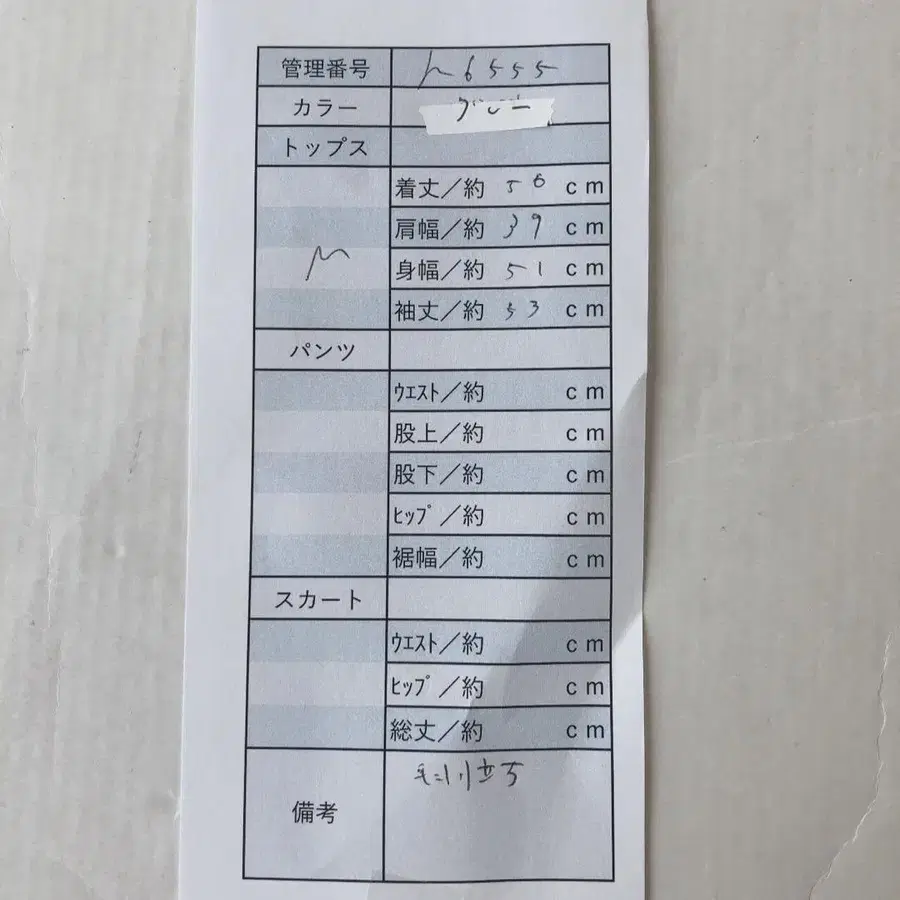 管理番号 h6555
カラー グレー
トップス
着丈／約 56 cm
肩幅／約 39 cm
M
身幅／約 51 cm
袖丈／約 53 cm
パンツ
ｳｴｽﾄ／約 cm
股上／約 cm
股下／約 cm
ﾋｯﾌﾟ／約 cm
裾幅／約 cm
スカート
ｳｴｽﾄ／約 cm
ﾋｯﾌﾟ／約 cm
総丈／約 cm
毛羽立ち
備考